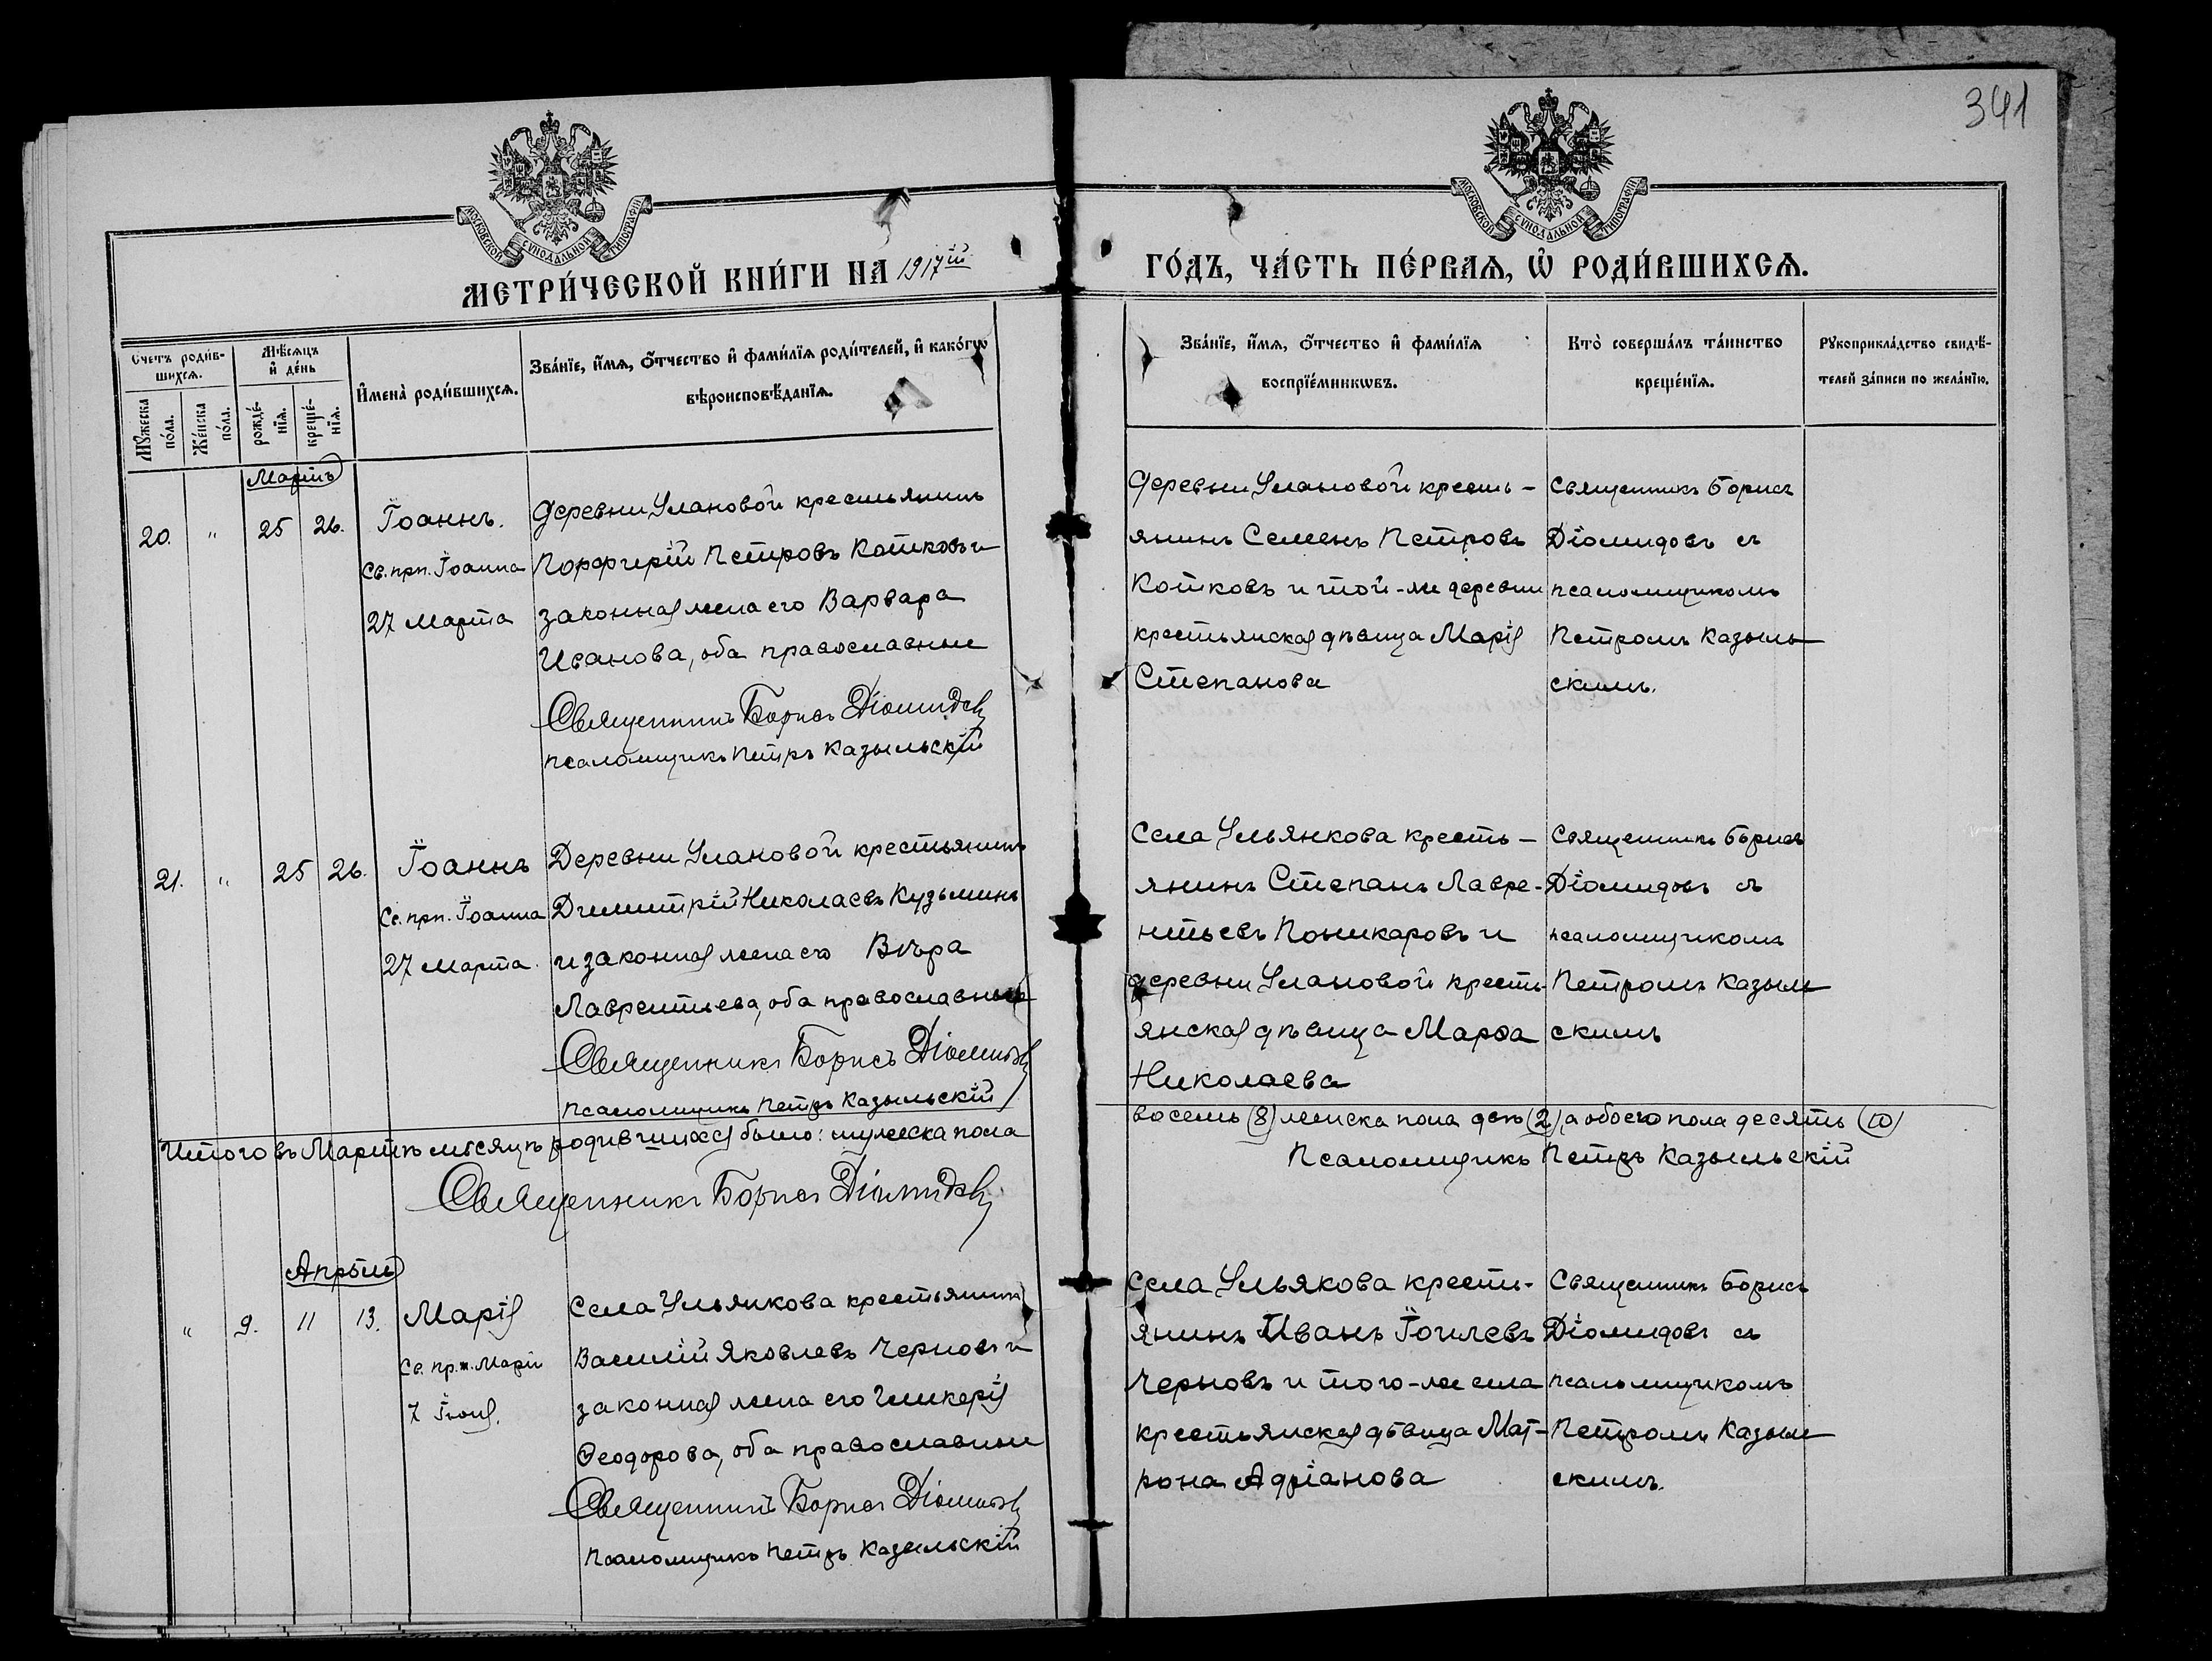 341
МОСКОВСКОЙ СУНОДАЛЬНОЙ ТИПОГРАФІИ
МОСКОВСКОЙ СУНОДАЛЬНОЙ ТИПОГРАФІИ
МЕТРИ́ЧЕСКОЙ КНИ́ГИ НА 1917ій
ГО́ДЪ, ЧА́СТЬ ПЕ́РВАѦ, Ѡ҆ РОДИ́ВШИХСѦ.
Счетъ роди́в-
шихсѧ.
Мѣ́сѧцъ
и҆ де́нь
И҆мена̀ роди́вшихсѧ.
Зва́нїе, и҆́мѧ, ѻ҆́тчество и҆ фами́лїѧ роди́телей, и҆ како́гѡ
вѣроисповѣ́данїѧ.
Мꙋ́жеска
по́ла.
Же́нска
по́ла.
рожде́-
нїѧ.
креще́-
нїѧ.
Зва́нїе, и҆́мѧ, ѻ҆́тчество и҆ фами́лїѧ
воспрїе́мникѡвъ.
Кто̀ соверша́лъ та́инство
креще́нїѧ.
Рꙋкоприкла́дство свидѣ́-
телей за́писи по жела́нїю.
Мартъ
20. " 25 26. Іоаннъ.
Св. прп. Іоанна
27 Марта
Деревни Улановой крестьянинъ
Порфирій Петровъ Котковъ и
законная жена его Варвара
Иванова, оба православные
Священникъ Борисъ Діомидовъ
псаломщикъ Петръ Казыльскій
Деревни Улановой кресть-
янинъ Семенъ Петровъ
Котковъ и той-же деревни
крестьянская дѣвица Марія
Степанова
Священникъ Борисъ
Діомидовъ съ
псаломщикомъ
Петромъ Казыль-
скимъ.
21. " 25 26. Іоаннъ
Св. прп. Іоанна
27 Марта.
Деревни Улановой крестьянинъ
Димитрій Николаевъ Кузьминъ
и законная жена его Вѣра
Лаврентьева, оба православные
Священникъ Борисъ Діомидовъ
псаломщикъ Петръ Казыльскій
Села Ульянкова кресть-
янинъ Степанъ Лавре-
нтьевъ Поникаровъ и
деревни Улановой кресть-
янская дѣвица Марѳа
Николаева
Священникъ Борисъ
Діомидовъ съ
псаломщикомъ
Петромъ Казыль-
скимъ
Итого въ Мартѣ мѣсяцѣ родившихся было: мужеска пола
восемь (8) женска пола двѣ (2), а обоего пола десять (10)
Священникъ Борисъ Діомидовъ
Псаломщикъ Петръ Казыльскій
Апрѣль
" 9. 11 13. Марія
Св. пр.ж. Маріи
7 Іюня.
Села Ульянкова крестьянинъ
Василій Яковлевъ Черновъ и
законная жена его Гликерія
Ѳеодорова, оба православные
Священникъ Борисъ Діомидовъ
Псаломщикъ Петръ Казыльскій
Села Ульякова кресть-
янинъ Иванъ Іовлевъ
Черновъ и того-же села
крестьянская дѣвица Мат-
рона Адріанова
Священникъ Борисъ
Діомидовъ съ
псаломщикомъ
Петромъ Казыль-
скимъ.